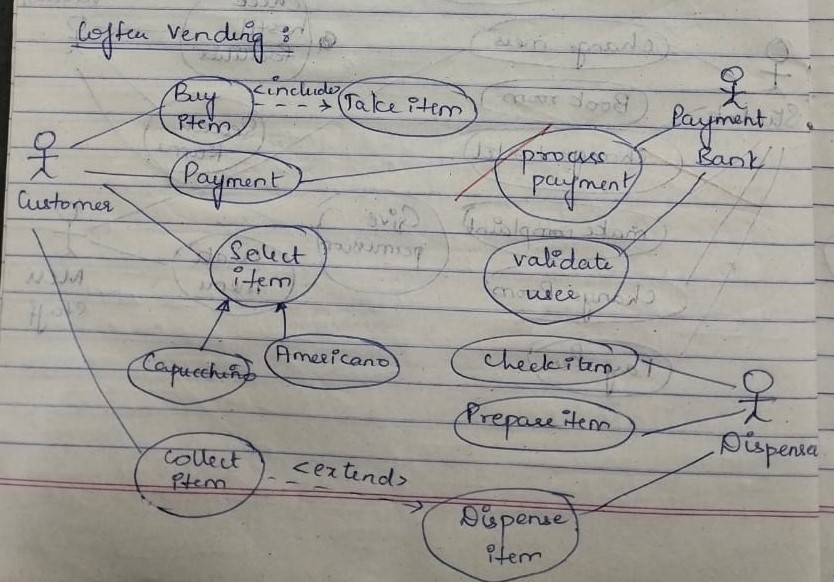 Coffee Vending :
Buy
item
<include>
Take item
Payment
Bank
process
payment
Payment
Customer
Select
item
validate
user
Capucchino
Americano
Check item
Prepare item
Dispensa
Collect
item
<extend>
Dispense
item